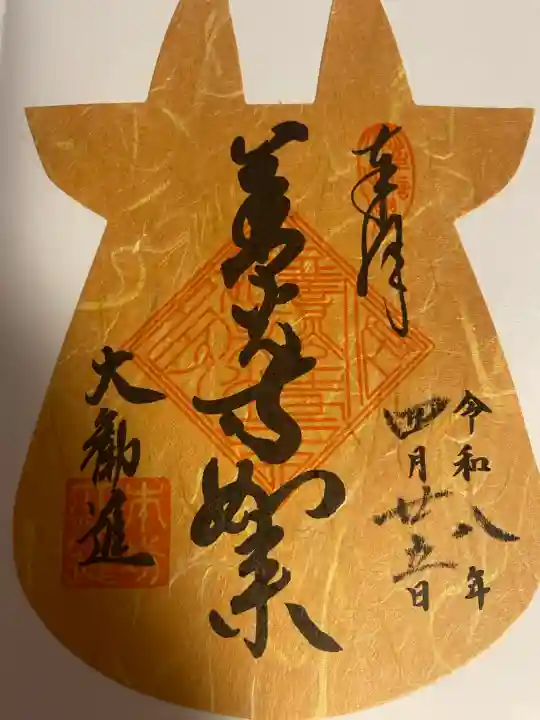 奉拝
令和八年
四月廿五日
善光寺如来
大勧進